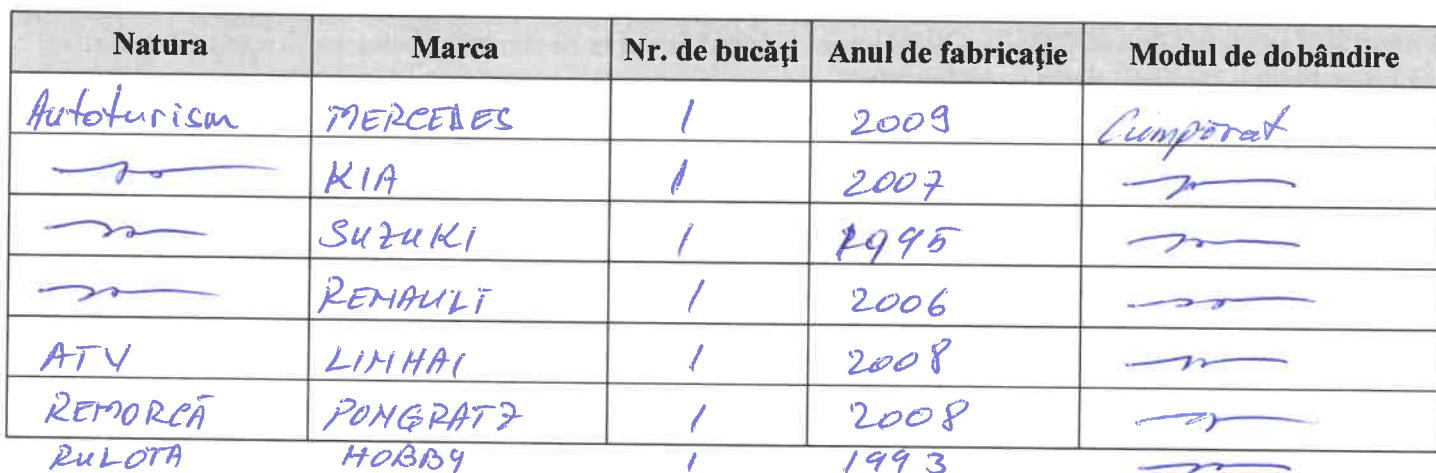 Natura Marca Nr. de bucăţi Anul de fabricaţie Modul de dobândire
Autoturism MERCEDES 1 2009 Cumpărat
—"— KIA 1 2007 —"—
—"— SUZUKI 1 1995 —"—
—"— RENAULT 1 2006 —"—
ATV LINHAI 1 2008 —"—
REMORCĂ PONGRATZ 1 2008 —"—
RULOTA HOBBY 1 1993 —"—